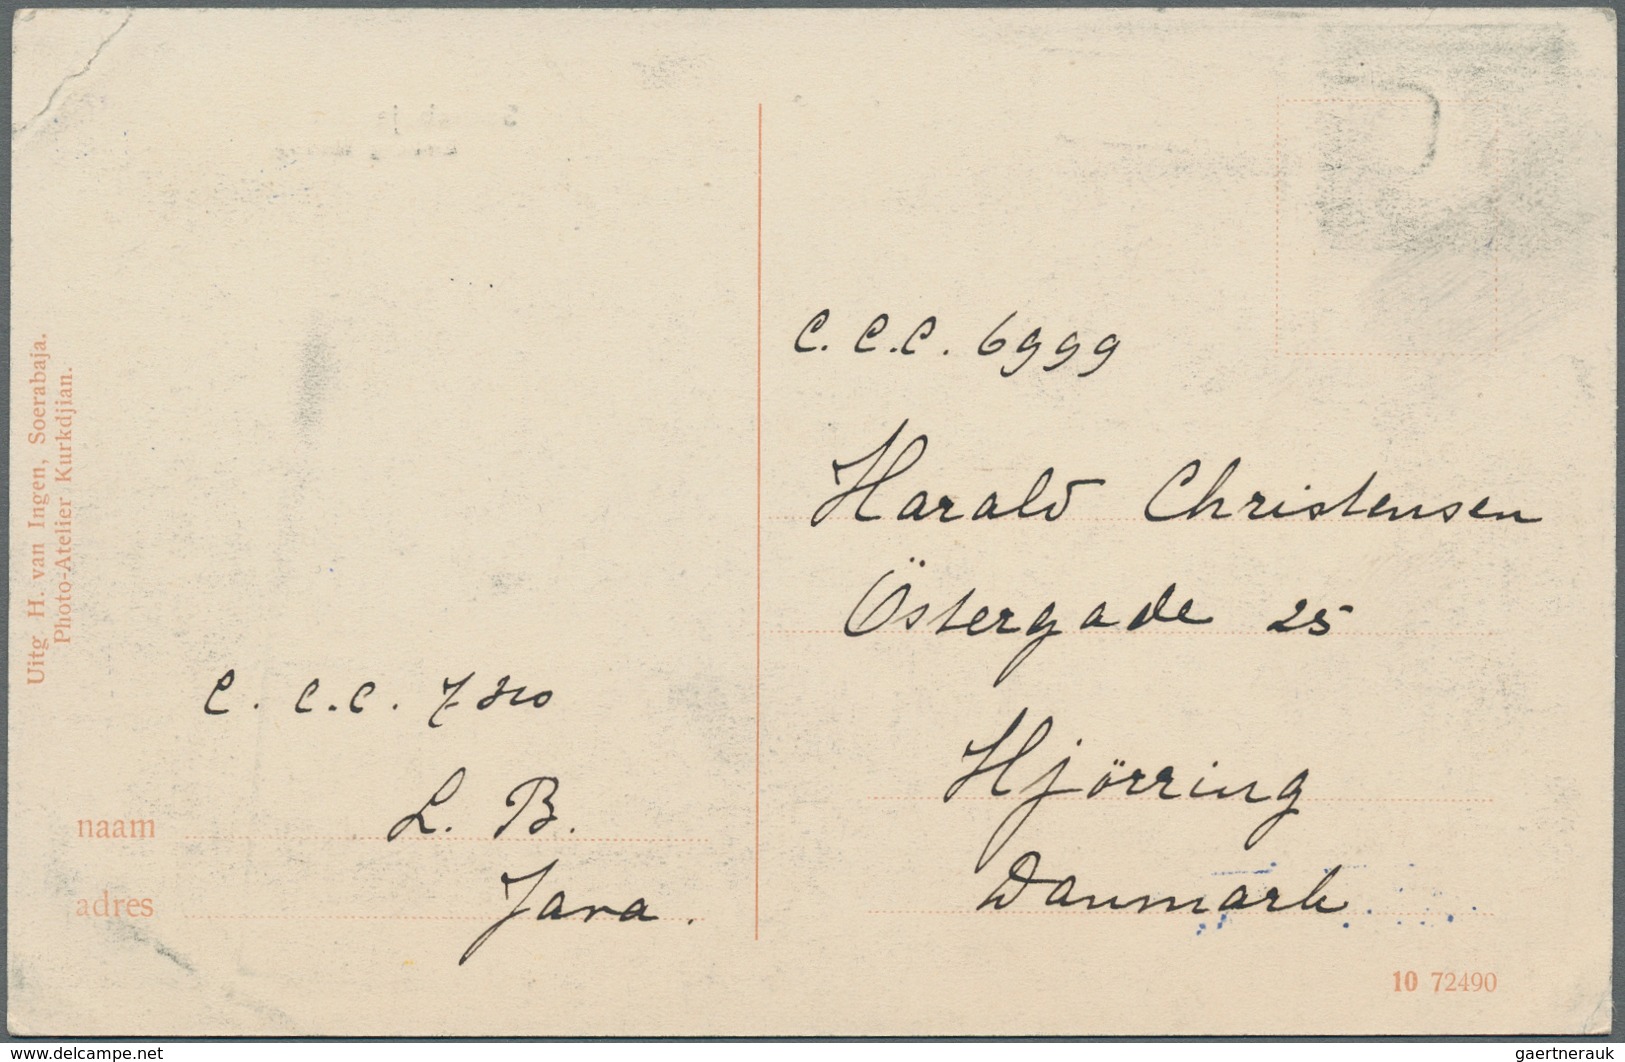 Uitg H. van Ingen, Soerabaja.
Photo-Atelier Kurkdjian.
C. C. C. 6999
Harald Christensen
Östergade 25
Hjörring
Danmark
C. C. C. 7310
L. B.
Java.
naam
adres
10 72490
www.delcampe.net
gaertnerauk